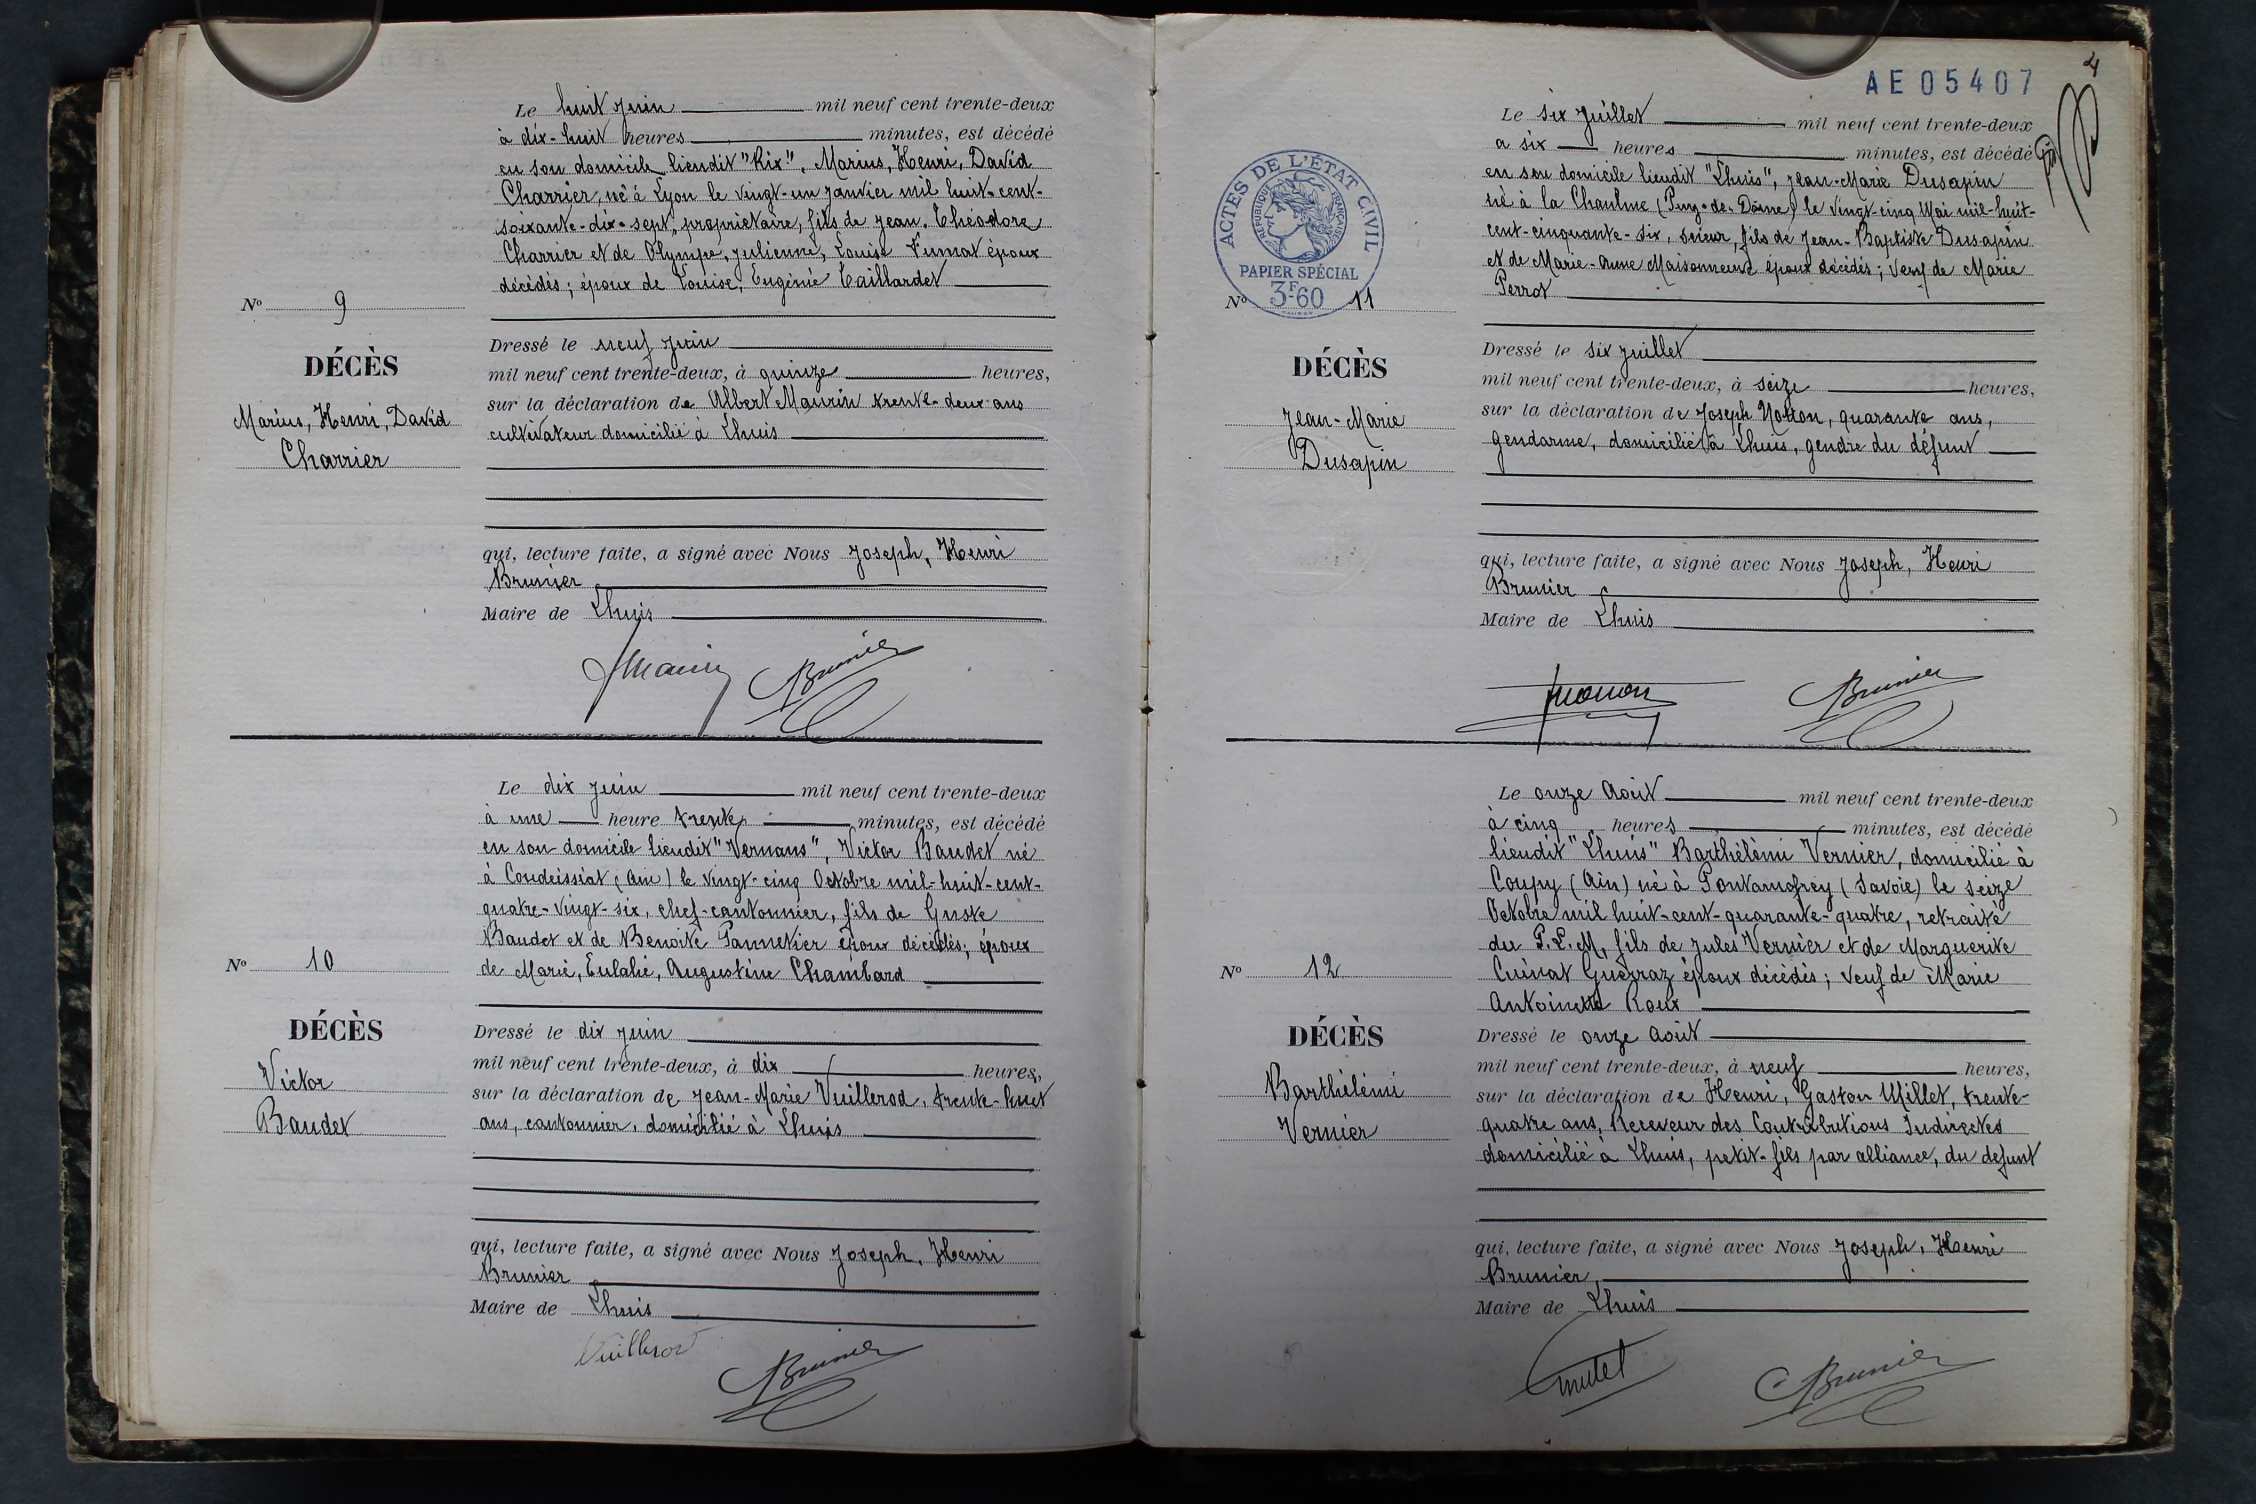 Le huit juin mil neuf cent trente-deux
à dix-huit heures minutes, est décédé
en son domicile lieudit "Rix", Marius, Henri, David
Charrier, né à Lyon le vingt-un janvier mil huit-cent-
soixante-dix-sept, propriétaire, fils de Jean, Théodore
Charrier et de Olympe, Julienne, Louise Fumat époux
décédés; époux de Louise, Eugénie Taillardet
N° 9
DÉCÈS
Marius, Henri, David
Charrier
Dressé le neuf juin
mil neuf cent trente-deux, à quinze heures,
sur la déclaration de Albert Maurin trente-deux ans
cultivateur domicilié à Lhuis
qui, lecture faite, a signé avec Nous Joseph, Henri
Brunier
Maire de Lhuis
Brunier
Le dix juin mil neuf cent trente-deux
à une heure trente minutes, est décédé
en son domicile lieudit "Vernans", Victor Baudet né
à Condeissiat (Ain) le vingt-cinq Octobre mil-huit-cent-
quatre-vingt-six, chef-cantonnier, fils de Guste
Baudet et de Benoite Pannetier époux décédés; époux
de Marie, Eulalie, Augustine Chambard
N° 10
DÉCÈS
Victor
Baudet
Dressé le dix juin
mil neuf cent trente-deux, à dix heures,
sur la déclaration de Jean-Marie Vuillerod, trente-huit
ans, cantonnier, domicilié à Lhuis
qui, lecture faite, a signé avec Nous Joseph, Henri
Brunier
Maire de Lhuis
Vuillerod
Brunier
4
AE05407
Le six juillet mil neuf cent trente-deux
a six heures minutes, est décédé
en son domicile lieudit "Lhuis", Jean-Marie Dusapin
né à la Chaulme (Puy-de-Dôme) le vingt-cinq Mai mil-huit-
cent-cinquante-six, scieur, fils de Jean-Baptiste Dusapin
et de Marie-Anne Maisonneuve époux décédés; veuf de Marie
Perrot
ACTES DE L'ÉTAT CIVIL
RÉPUBLIQUE FRANÇAISE
PAPIER SPÉCIAL
3F.60
N° 11
DÉCÈS
Jean-Marie
Dusapin
Dressé le six juillet
mil neuf cent trente-deux, à seize heures,
sur la déclaration de Joseph quarante ans,
gendarme, domicilié à Lhuis, gendre du défunt
qui, lecture faite, a signé avec Nous Joseph, Henri
Brunier
Maire de Lhuis
Brunier
Le onze Août mil neuf cent trente-deux
à cinq heures minutes, est décédé
lieudit "Lhuis" Barthélémi Vernier, domicilié à
Coupy (Ain) né à Pontamafrey (Savoie) le seize
Octobre mil huit-cent-quarante-quatre, retraité
du P.L.M, fils de Jules Vernier et de Marguerite
Cuinat Guerraz époux décédés; veuf de Marie
Antoinette Roux
N° 12
DÉCÈS
Barthélémi
Vernier
Dressé le onze Août
mil neuf cent trente-deux, à neuf heures,
sur la déclaration de Henri, Gaston Millet, trente-
quatre ans, Receveur des Contributions Indirectes
domicilié à Lhuis, petit-fils par alliance, du defunt
qui, lecture faite, a signé avec Nous Joseph, Henri
Brunier,
Maire de Lhuis
Brunier